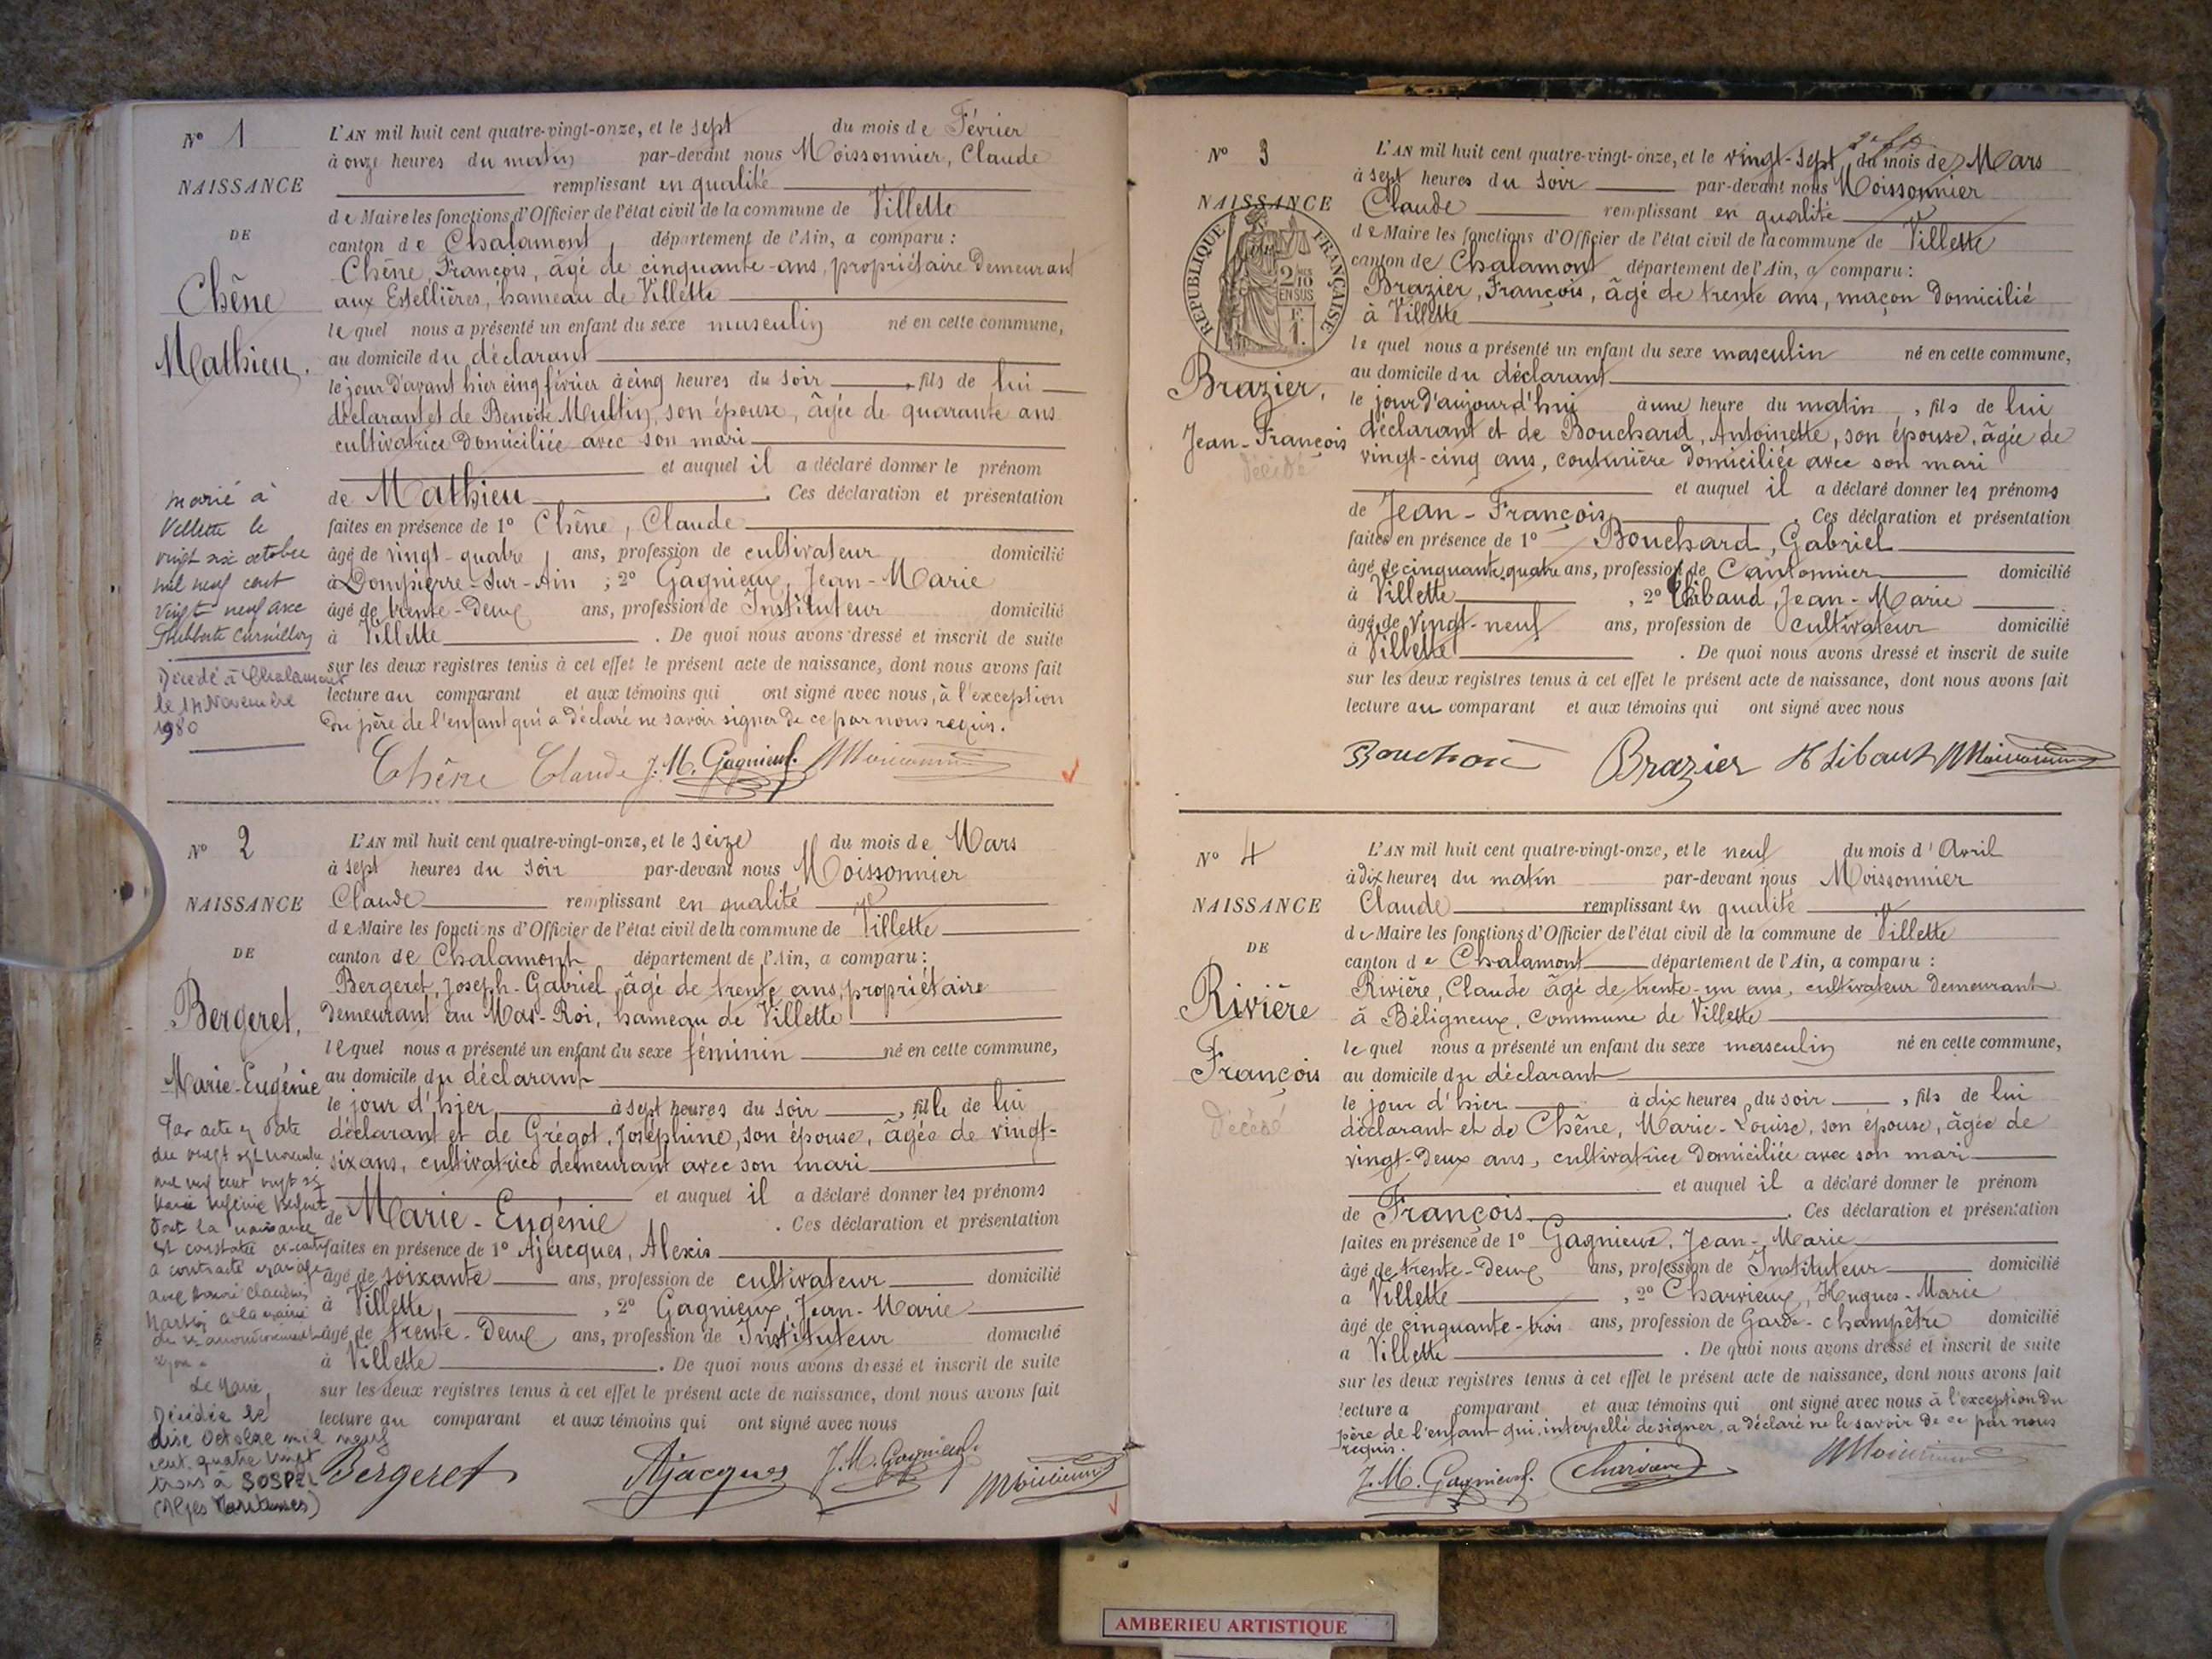 N° 1
NAISSANCE
DE
Chêne
Mathieu.
marié à
Villette le
vingt six octobre
mil neuf cent
vingt neuf avec
Décédé à Chalamont
le 14 Novembre
1980
L'AN mil huit cent quatre-vingt-onze, et le sept du mois de Février
à onze heures du matin par-devant nous Moissonnier, Claude
remplissant en qualité
de Maire les fonctions d'Officier de l'état civil de la commune de Villette
canton de Chalamont, département de l'Ain, a comparu :
Chêne, François, âgé de cinquante-ans, propriétaire demeurant
aux Estellières, hameau de Villette
lequel nous a présenté un enfant du sexe masculin né en cette commune,
au domicile du déclarant
le jour d'avant hier cinq février à cinq heures du soir, fils de lui
déclarant et de Benoite Multin, son épouse, âgée de quarante ans
cultivatrice domiciliée avec son mari
et auquel il a déclaré donner le prénom
de Mathieu. Ces déclaration et présentation
faites en présence de 1° Chêne, Claude
âgé de vingt-quatre, ans, profession de cultivateur domicilié
à Dompierre-sur-Ain ; 2° Gagnieux, Jean-Marie
âgé de trente-deux ans, profession de Instituteur domicilié
à Villette. De quoi nous avons dressé et inscrit de suite
sur les deux registres tenus à cet effet le présent acte de naissance, dont nous avons fait
lecture au comparant et aux témoins qui ont signé avec nous, à l'exception
du père de l'enfant qui a déclaré ne savoir signer de ce par nous requis.
Chêne Claude J. M. Gagnieux.
N° 2
NAISSANCE
DE
Bergeret,
Marie-Eugénie
Par acte en date
du vingt sept novembre
mil neuf cent vingt
dont la naissance
est constatée ci-contre
a contracté mariage
avec
à la mairie
du arrondissement
Lyon
Le Maire,
Décédée le
Octobre mil neuf
cent quatre vingt
trois à SOSPEL
(Alpes Maritimes)
L'AN mil huit cent quatre-vingt-onze, et le seize du mois de Mars
à sept heures du soir par-devant nous Moissonnier
Claude remplissant en qualité
de Maire les fonctions d'Officier de l'état civil de la commune de Villette
canton de Chalamont département de l'Ain, a comparu :
Bergeret, Joseph-Gabriel, âgé de trente ans, propriétaire
demeurant au Mas-Roi, hameau de Villette
lequel nous a présenté un enfant du sexe féminin né en cette commune,
au domicile du déclarant
le jour d'hier, à sept heures du soir, fille de lui
déclarant et de Grégot, Joséphine, son épouse, âgée de vingt-
six ans, cultivatrice demeurant avec son mari
et auquel il a déclaré donner les prénoms
de Marie-Eugénie. Ces déclaration et présentation
faites en présence de 1° Ajacques, Alexis
âgé de soixante ans, profession de cultivateur domicilié
à Villette, , 2° Gagnieux, Jean-Marie
âgé de trente-deux ans, profession de Instituteur domicilié
à Villette. De quoi nous avons dressé et inscrit de suite
sur les deux registres tenus à cet effet le présent acte de naissance, dont nous avons fait
lecture au comparant et aux témoins qui ont signé avec nous
Bergeret Ajacques J. M. Gagnieux.
N° 3
NAISSANCE
RÉPUBLIQUE FRANÇAISE
2/10
EN SUS
1F.
Brazier,
Jean-François
décédé
L'AN mil huit cent quatre-vingt-onze, et le vingt-sept du mois de Mars
à sept heures du soir par-devant nous Moissonnier
Claude remplissant en qualité
de Maire les fonctions d'Officier de l'état civil de la commune de Villette
canton de Chalamont département de l'Ain, a comparu :
Brazier, François, âgé de trente ans, maçon domicilié
à Villette
lequel nous a présenté un enfant du sexe masculin né en cette commune,
au domicile du déclarant
le jour d'aujourd'hui à une heure du matin, fils de lui
déclarant et de Bouchard, Antoinette, son épouse, âgée de
vingt-cinq ans, couturière domiciliée avec son mari
et auquel il a déclaré donner les prénoms
de Jean-François. Ces déclaration et présentation
faites en présence de 1° Bouchard, Gabriel
âgé de cinquante-quatre ans, profession de Cantonnier domicilié
à Villette, 2° Thibaud, Jean-Marie
âgé de vingt-neuf ans, profession de cultivateur domicilié
à Villette. De quoi nous avons dressé et inscrit de suite
sur les deux registres tenus à cet effet le présent acte de naissance, dont nous avons fait
lecture au comparant et aux témoins qui ont signé avec nous
Brazier
N° 4
NAISSANCE
DE
Rivière
François
Décédé
L'AN mil huit cent quatre-vingt-onze, et le neuf du mois d'Avril
à dix heures du matin par-devant nous Moissonnier
Claude remplissant en qualité
de Maire les fonctions d'Officier de l'état civil de la commune de Villette
canton de Chalamont département de l'Ain, a comparu :
Rivière, Claude âgé de trente-un ans, cultivateur demeurant
à Béligneux, commune de Villette
lequel nous a présenté un enfant du sexe masculin né en cette commune,
au domicile du déclarant
le jour d'hier à dix heures du soir, fils de lui
déclarant et de Chêne, Marie-Louise, son épouse, âgée de
vingt-deux ans, cultivatrice domiciliée avec son mari
et auquel il a déclaré donner le prénom
de François. Ces déclaration et présentation
faites en présence de 1° Gagnieux, Jean-Marie
âgé de trente-deux ans, profession de Instituteur domicilié
a Villette, 2° Charvieux, Hugues-Marie
âgé de cinquante-trois ans, profession de Garde-champêtre domicilié
a Villette. De quoi nous avons dressé et inscrit de suite
sur les deux registres tenus à cet effet le présent acte de naissance, dont nous avons fait
lecture a comparant et aux témoins qui ont signé avec nous à l'exception du
père de l'enfant qui, interpellé de signer, a déclaré ne le savoir de ce par nous
requis.
J. M. Gagnieux. Charvieux
AMBERIEU ARTISTIQUE